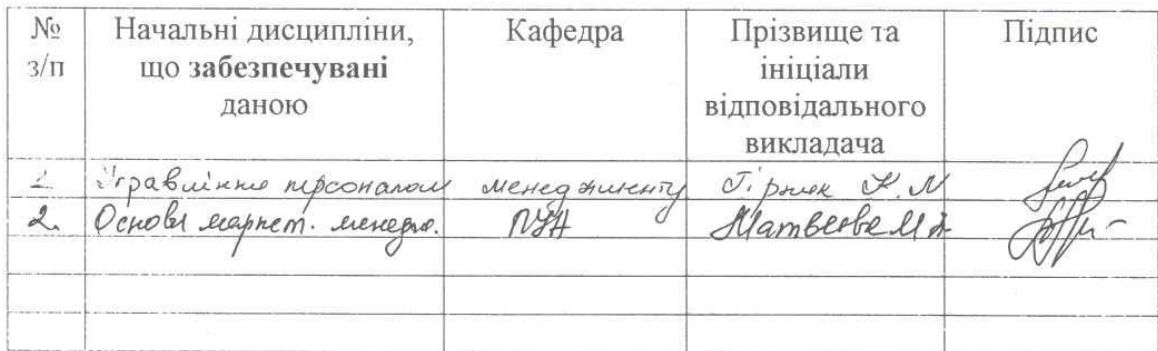 № з/п Начальні дисципліни, що забезпечувані даною Кафедра Прізвище та ініціали відповідального викладача Підпис
Управління персоналом менеджменту
2. Основи маркет. менедж. Матвєєва